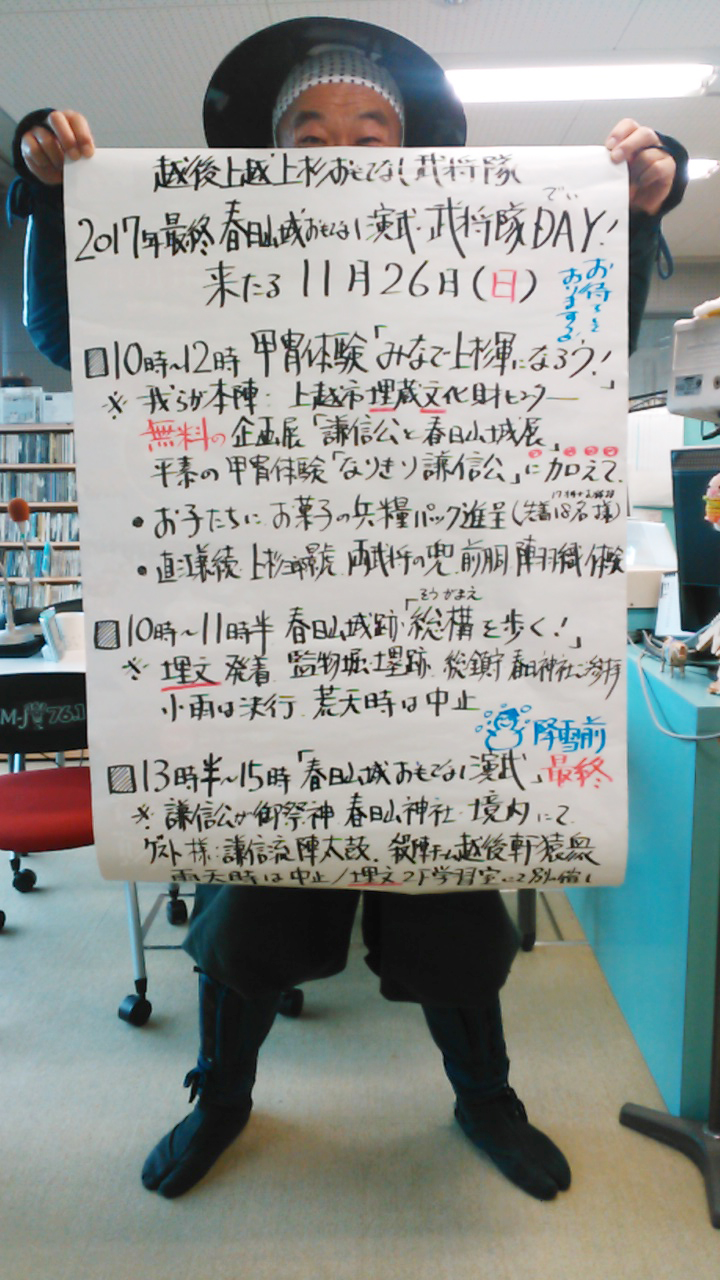 越後上越上杉おもてなし武将隊
2017年最終 春日山城おもてなし演武・武将隊DAY!
でい
来たる 11月26日(日)
お待ちを
おりまする
10時~12時 甲冑体験「みなで上杉軍になろう!」
※ 我らが本陣:上越市埋蔵文化財センター
無料の企画展「謙信公と春日山城展」
平素の甲冑体験「なりきり謙信公」に加えて
・お子たちに お菓子の兵糧パック進呈(先着18名様)
・直江兼続 上杉景虎 両武将の兜 前胴 陣羽織体験
そうがまえ
10時~11時半 春日山城跡・「総構を歩く!」
※ 埋文発着 監物堀・土塁跡 総鎮守 春日神社に参拝
小雨は決行 荒天時は中止
降雪前
13時半~15時「春日山城おもてなし演武」最終
※ 謙信公が御祭神 春日山神社・境内にて
ゲスト様:謙信流陣太鼓、殺陣チーム越後軒猿衆
雨天時は中止/埋文2F学習室にて
M-J 76.1